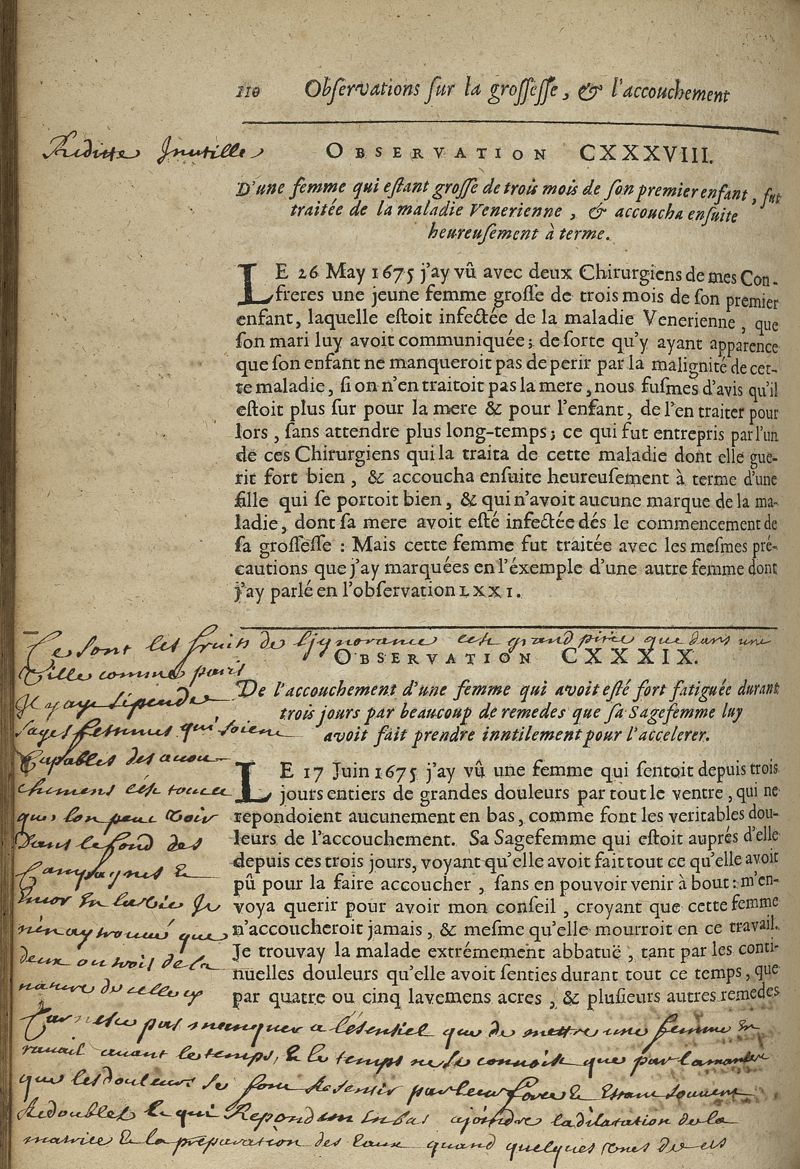 110 Observations sur la grossesse, & l'accouchement
Reditte Inutille
OBSERVATION CXXXVIII.
D'une femme qui estant grosse de trois mois de son premier enfant, fut
traitée de la maladie Venerienne, & accoucha ensuite
heureusement à terme.
LE 26 May 1675 j'ay vû avec deux Chirurgiens de mes Con-
freres une jeune femme grosse de trois mois de son premier
enfant, laquelle estoit infectée de la maladie Venerienne, que
son mari luy avoit communiquée; de sorte qu'y ayant apparence
que son enfant ne manqueroit pas de perir par la malignité de cet-
te maladie, si on n'en traitoit pas la mere, nous fusmes d'avis qu'il
estoit plus sur pour la mere & pour l'enfant, de l'en traiter pour
lors, sans attendre plus long-temps; ce qui fut entrepris par l'un
de ces Chirurgiens qui la traita de cette maladie dont elle gue-
rit fort bien, & accoucha ensuite heureusement à terme d'une
fille qui se portoit bien, & qui n'avoit aucune marque de la ma-
ladie, dont sa mere avoit esté infectée dés le commencement de
sa grossesse : Mais cette femme fut traitée avec les mesmes pré-
cautions que j'ay marquées en l'éxemple d'une autre femme dont
j'ay parlé en l'observation LXXI.
Ce sont les fruits de l'ignorance cest grand pitié que dans une
OBSERVATION CXXXIX.
Ville comme paris
De l'accouchement d'une femme qui avoit esté fort fatiguée durant
trois jours par beaucoup de remedes que sa Sagefemme luy
avoit fait prendre inntilement pour l'accelerer.
Il y aye si peu de
sages femmes qui soient
Capables des accou
chements
LE 17 Juin 1675 j'ay vû une femme qui sentoit depuis trois
jours entiers de grandes douleurs par tout le ventre, qui ne
repondoient aucunement en bas, comme font les veritables dou-
leurs de l'accouchement. Sa Sagefemme qui estoit auprés d'elle
depuis ces trois jours, voyant qu'elle avoit fait tout ce qu'elle avoit
pû pour la faire accoucher, sans en pouvoir venir à bout: m'en-
voya querir pour avoir mon conseil, croyant que cette femme
n'accoucheroit jamais, & mesme qu'elle mourroit en ce travail.
Je trouvay la malade extrémement abbatuë, tant par les conti-
nuelles douleurs qu'elle avoit senties durant tout ce temps, que
par quatre ou cinq lavemens acres, & plusieurs autres remedes
que lon peut Voir
Dans le fond des
Campagnes &
n'en ay trouvé que
deux ou trois de la
nature de celle cy
pas manquer a lesentiel que de mettre une femme en
travail avant le temps, & le temps ne se connoit que par la maniere
que les douleurs se font
Redoubles & qui Repondent en bas ajoindre la dilatation de la
matrice & la préparation des Eaux quand quelques